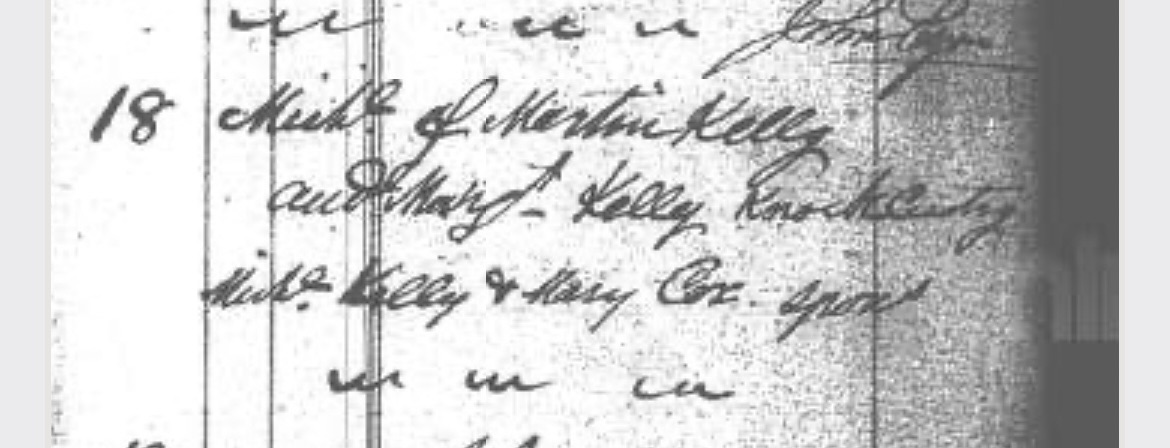 " " " John
18 Michl of Martin Kelly
and Margt Kelly
Michl Kelly & Mary Cox spons
" " "